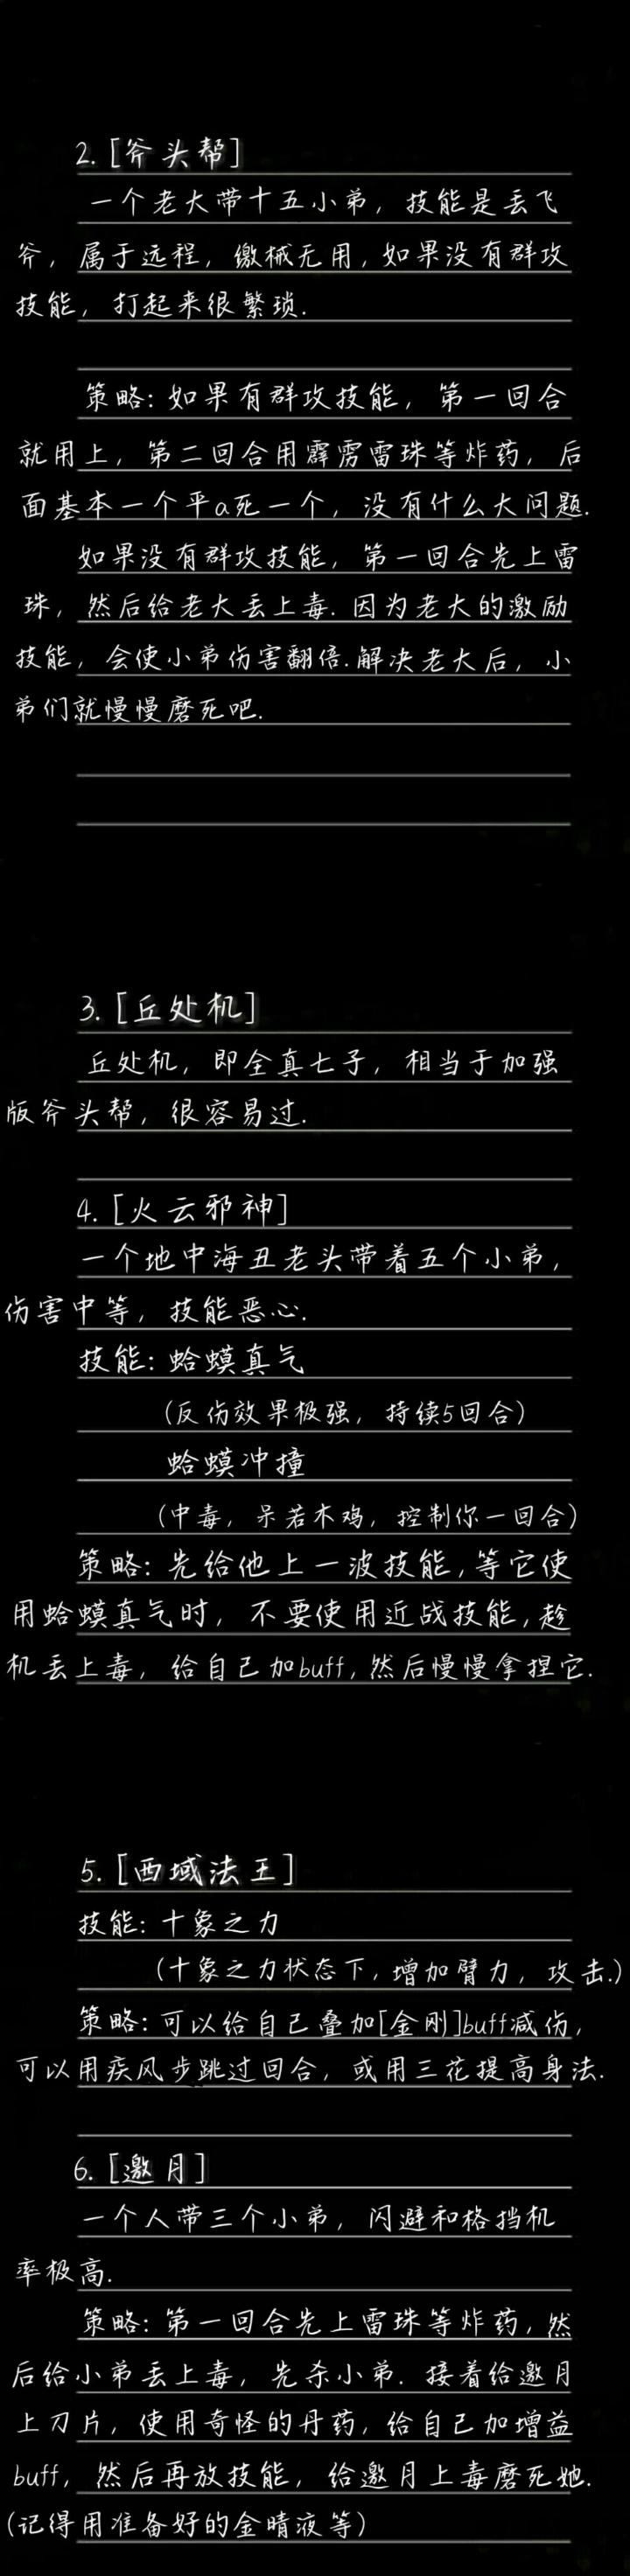 2. [斧头帮]
一个老大带十五小弟，技能是丢飞
斧，属于远程，缴械无用，如果没有群攻
技能，打起来很繁琐.
策略: 如果有群攻技能，第一回合
就用上，第二回合用霹雳雷珠等炸药，后
面基本一个平a死一个，没有什么大问题.
如果没有群攻技能，第一回合先上雷
珠，然后给老大丢上毒. 因为老大的激励
技能，会使小弟伤害翻倍. 解决老大后，小
弟们就慢慢磨死吧.
3. [丘处机]
丘处机，即全真七子，相当于加强
版斧头帮，很容易过.
4. [火云邪神]
一个地中海丑老头带着五个小弟，
伤害中等，技能恶心.
技能: 蛤蟆真气
(反伤效果极强，持续5回合)
蛤蟆冲撞
(中毒，呆若木鸡，控制你一回合)
策略: 先给他上一波技能, 等它使
用蛤蟆真气时，不要使用近战技能, 趁
机丢上毒，给自己加buff, 然后慢慢拿捏它.
5. [西域法王]
技能: 十象之力
(十象之力状态下, 增加臂力，攻击.)
策略: 可以给自己叠加[金刚]buff减伤,
可以用疾风步跳过回合，或用三花提高身法.
6. [邀月]
一个人带三个小弟，闪避和格挡机
率极高.
策略: 第一回合先上雷珠等炸药, 然
后给小弟丢上毒，先杀小弟. 接着给邀月
上刀片，使用奇怪的丹药, 给自己加增益
buff, 然后再放技能，给邀月上毒磨死她.
(记得用准备好的金晴液等)